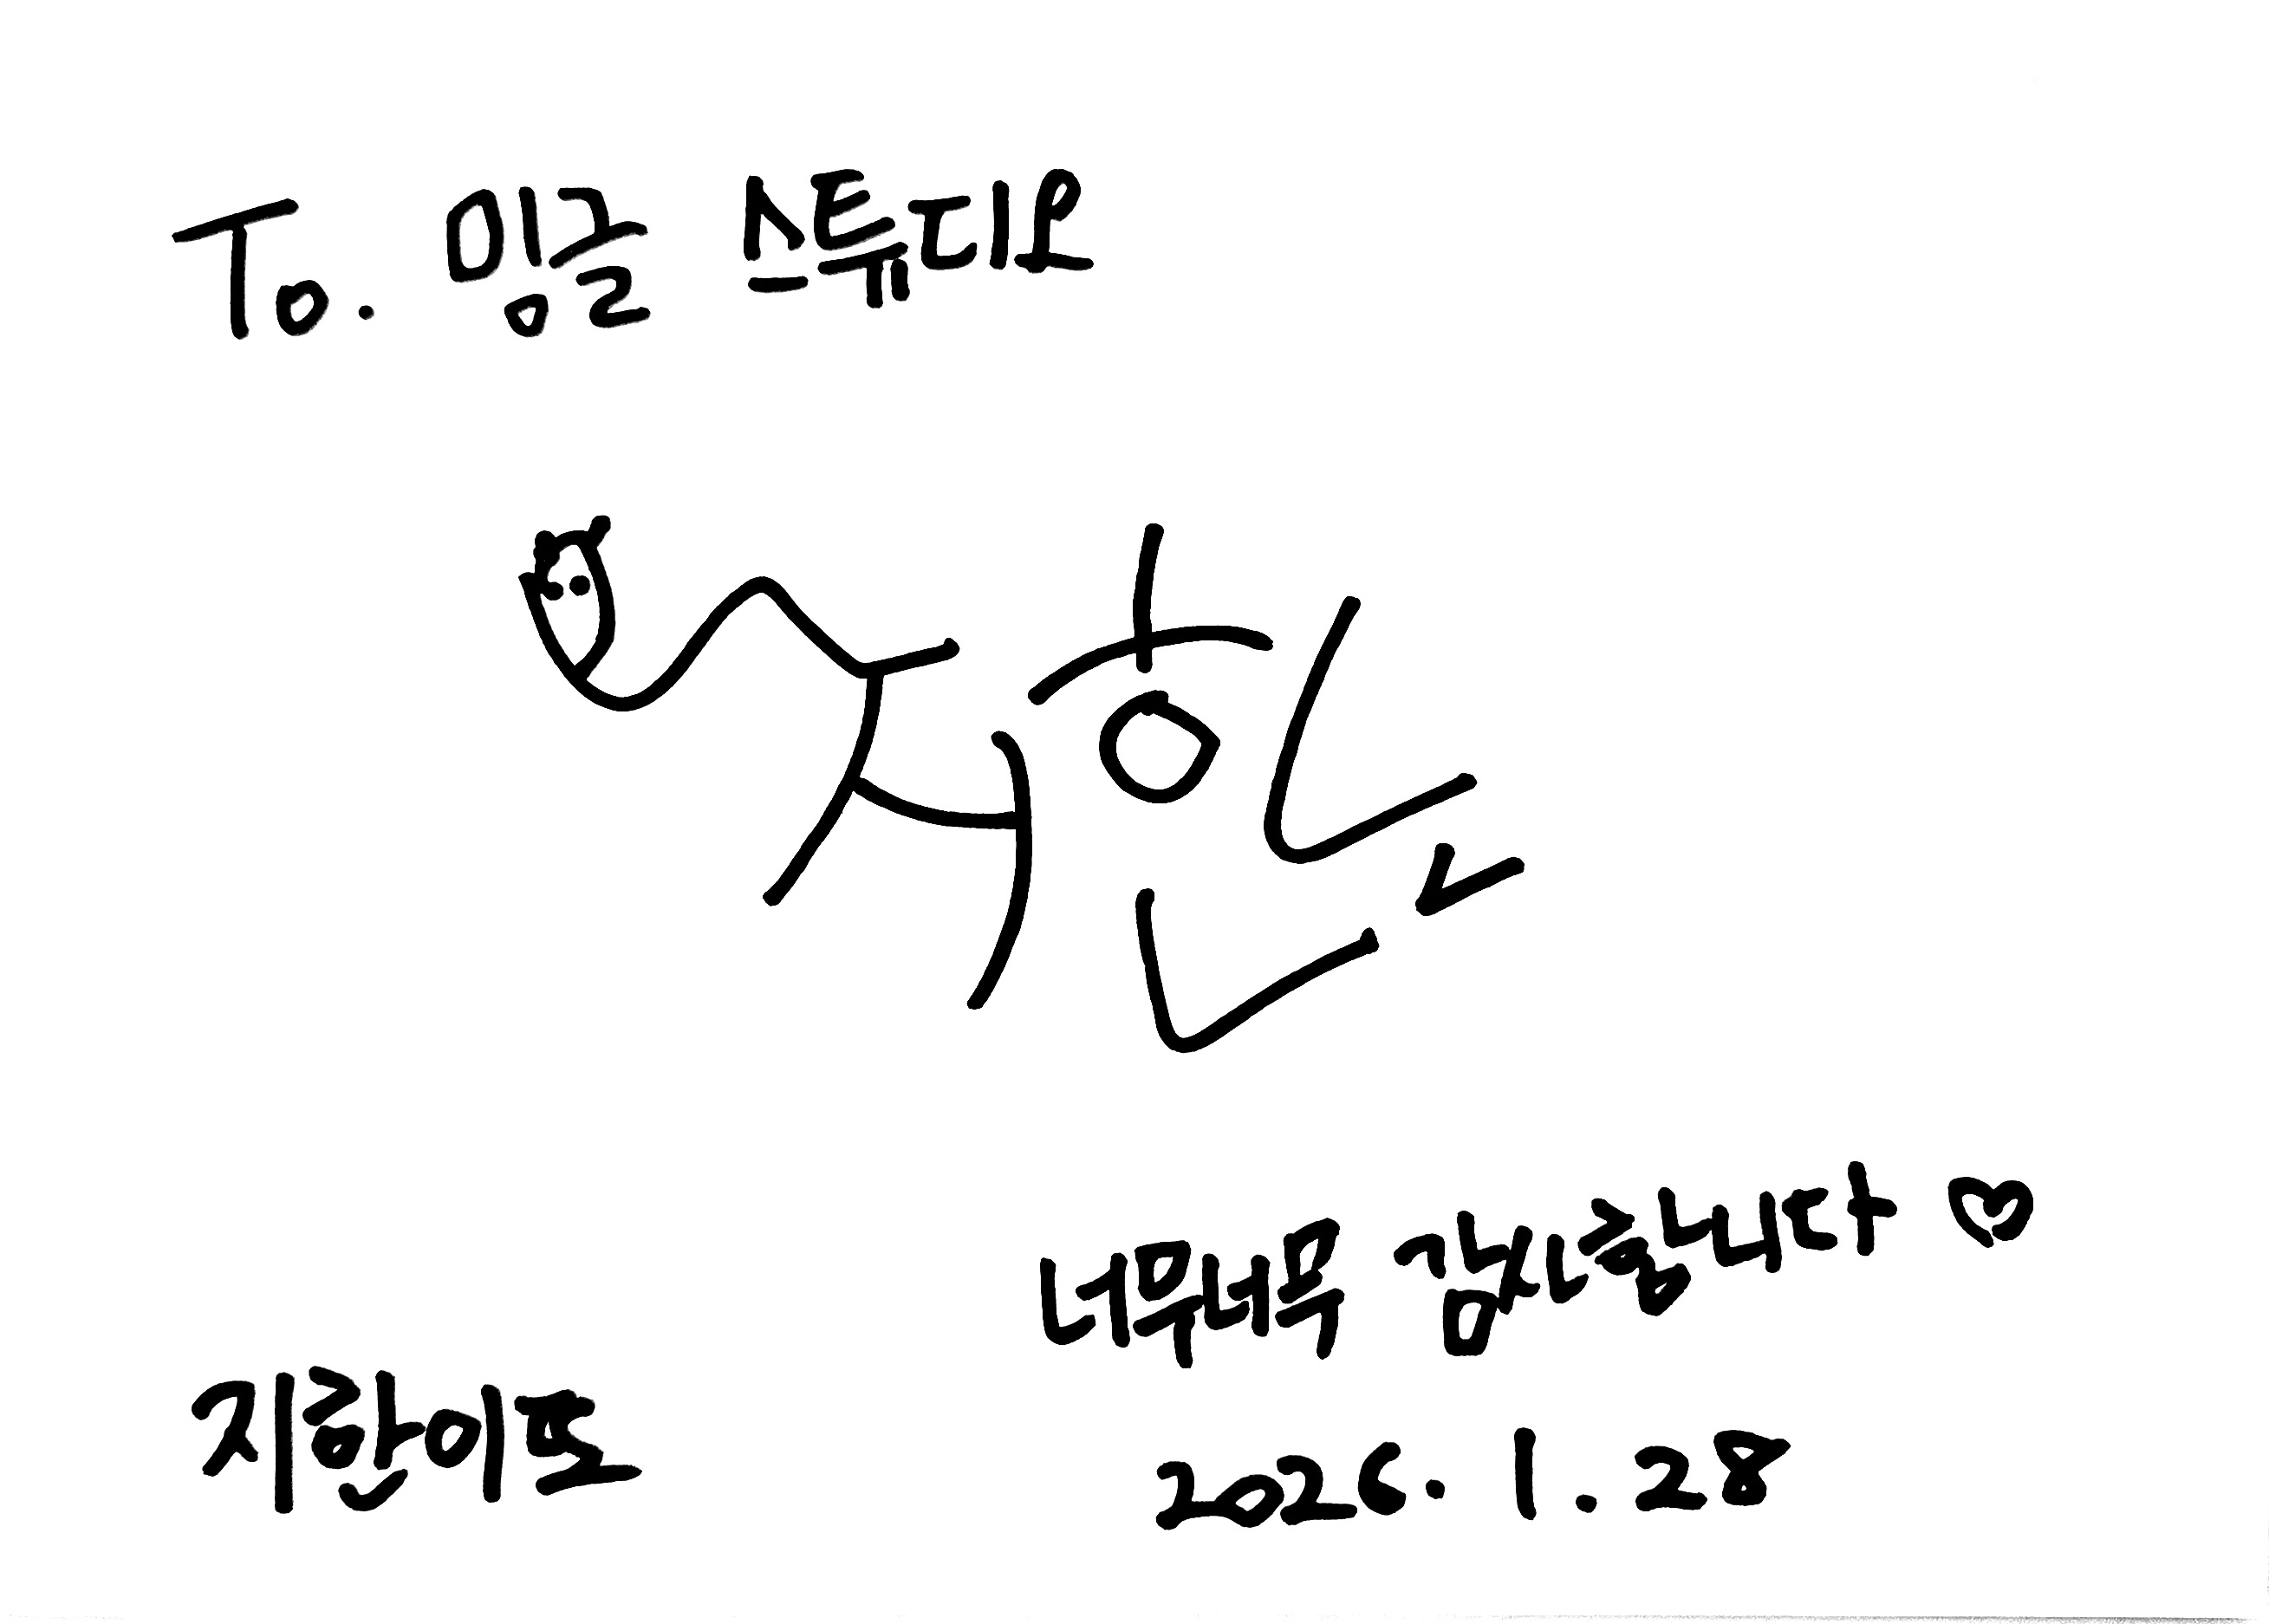 To. 잉글 스튜디오
지한
너무너무 감사합니다 ♡
2026. 1. 28